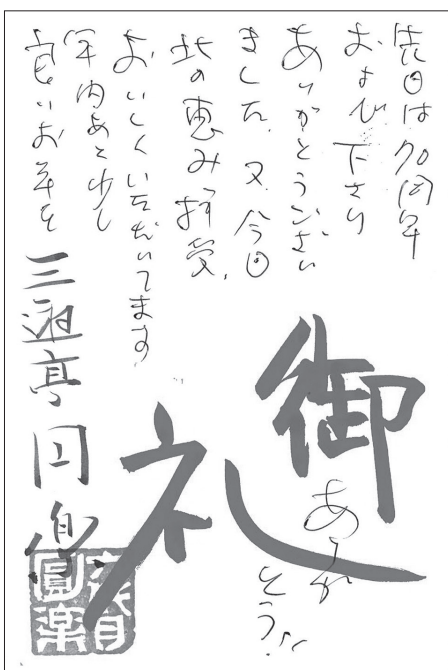 先日は70周年
および下さり
ありがとうござい
ました。又、今回
北の恵み拝受、
おいしくいただいてます
年内あと少し
良いお年を
御礼
ありがとう!!
三遊亭円楽
六代目
圓楽